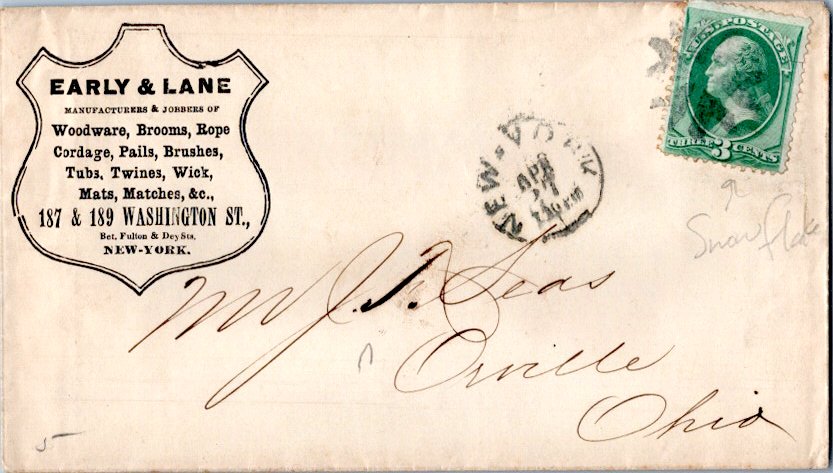 EARLY & LANE
MANUFACTURERS & JOBBERS OF
Woodware, Brooms, Rope
Cordage, Pails, Brushes,
Tubs, Twines, Wick,
Mats, Matches, &c.,
187 & 189 WASHINGTON ST.,
Bet. Fulton & Dey Sts.
NEW-YORK.
U.S. POSTAGE
THREE 3 CENTS
NEW-YORK
APR
Snow flake
Mr J. F. Seas
Orville
Ohio
5